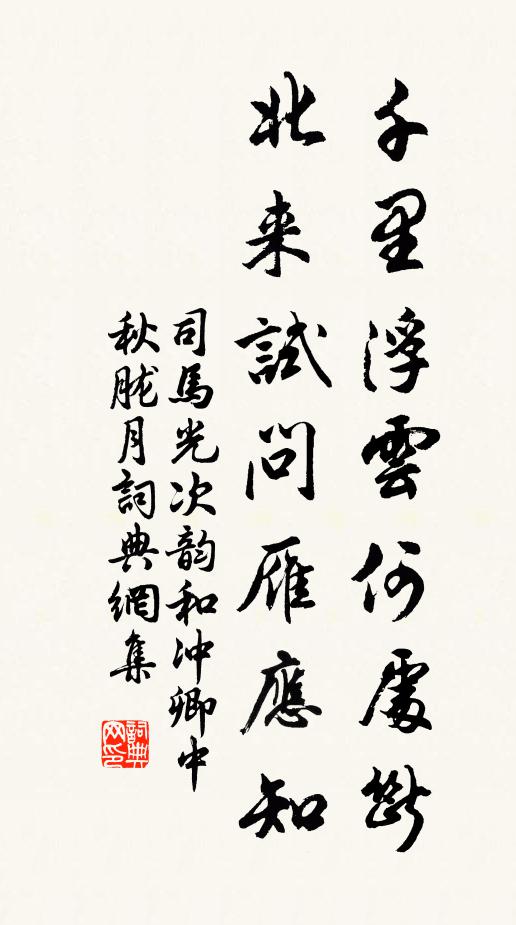 千里浮雲何處斷
北来試問雁應知
司馬光次韵和冲卿中
秋胧月詞典網集
詞典
网印